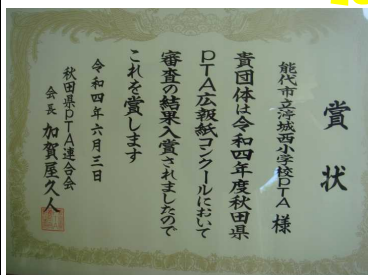 賞状
能代市立渟城西小学校PTA 様
貴団体は令和四年度秋田県
PTA広報紙コンクールにおいて
審査の結果入賞されましたので
これを賞します
令和四年六月三日
秋田県PTA連合会
会長 加賀屋久人